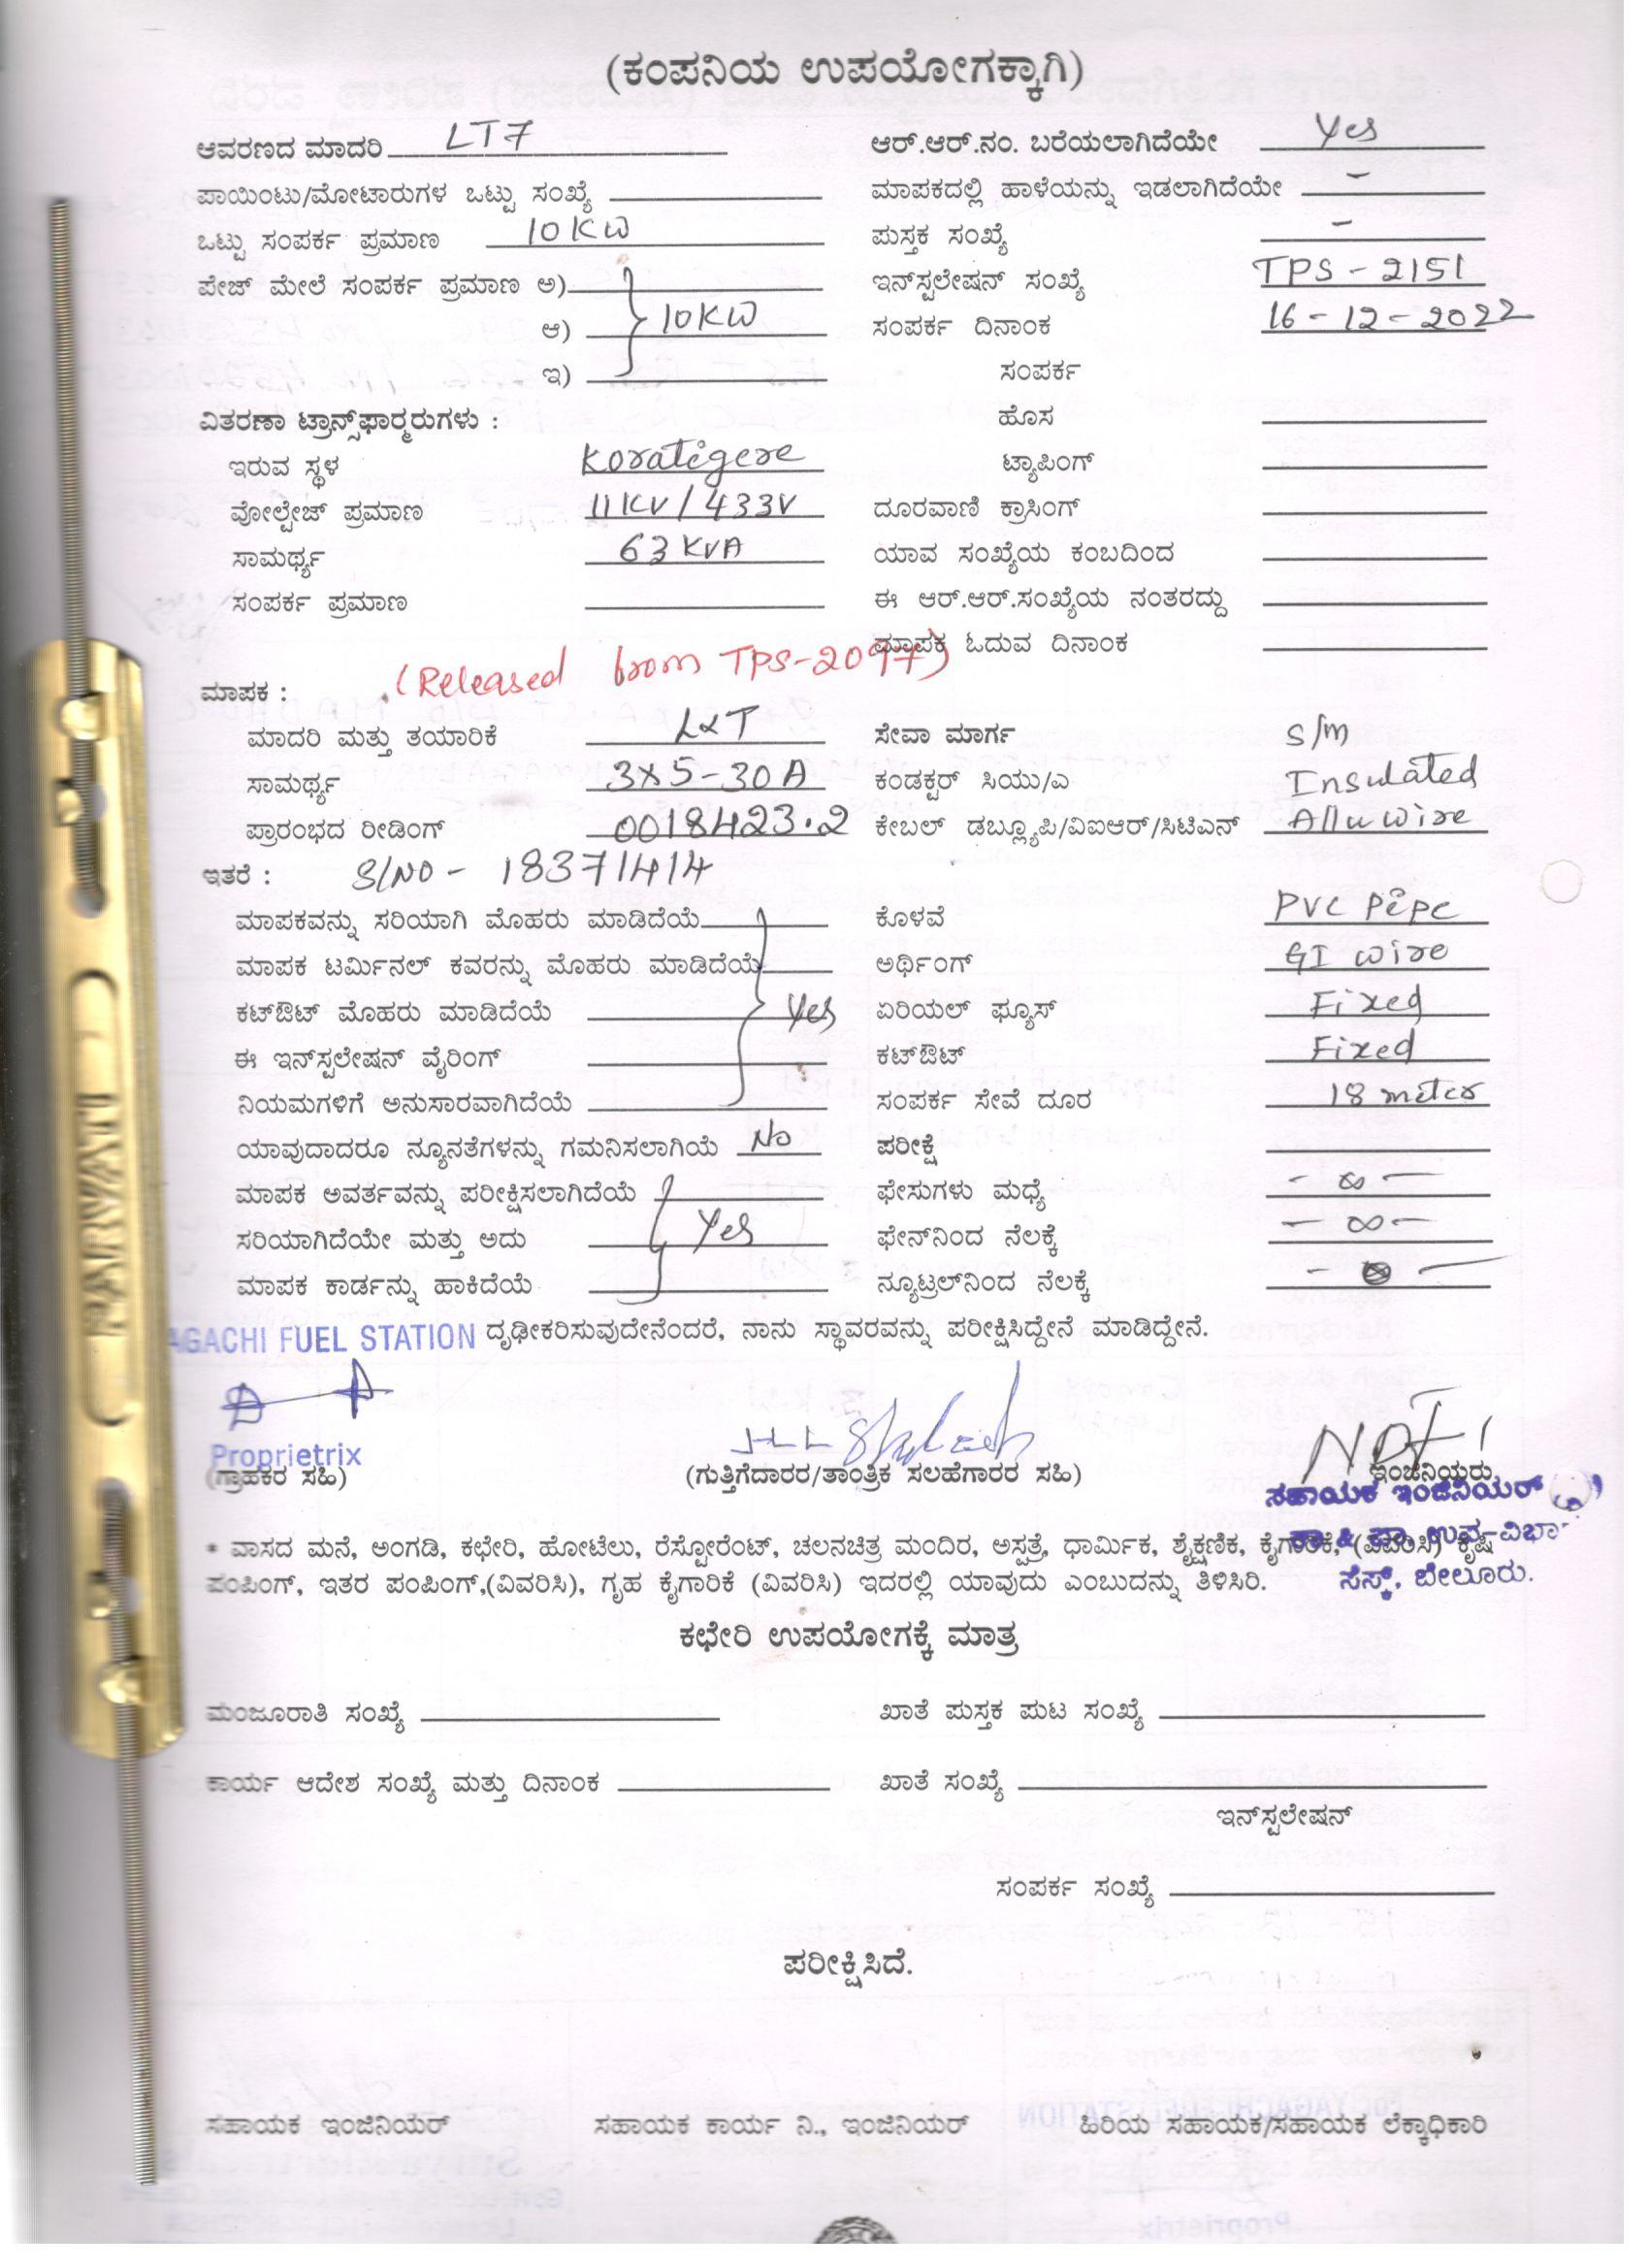 (ಕಂಪನಿಯ ಉಪಯೋಗಕ್ಕಾಗಿ)
ಆವರಣದ ಮಾದರಿ LT7 ಆರ್.ಆರ್.ನಂ. ಬರೆಯಲಾಗಿದೆಯೇ Yes
ಪಾಯಿಂಟು/ಮೋಟಾರುಗಳ ಒಟ್ಟು ಸಂಖ್ಯೆ ಮಾಪಕದಲ್ಲಿ ಹಾಳೆಯನ್ನು ಇಡಲಾಗಿದೆಯೇ -
ಒಟ್ಟು ಸಂಪರ್ಕ ಪ್ರಮಾಣ 10KW ಪುಸ್ತಕ ಸಂಖ್ಯೆ -
ಪೇಜ್ ಮೇಲೆ ಸಂಪರ್ಕ ಪ್ರಮಾಣ ಅ) ಇನ್‌ಸ್ಟಲೇಷನ್ ಸಂಖ್ಯೆ TPS-2151
ಆ) 10KW ಸಂಪರ್ಕ ದಿನಾಂಕ 16-12-2022
ಇ) ಸಂಪರ್ಕ
ವಿತರಣಾ ಟ್ರಾನ್ಸ್‌ಫಾರ್ಮರುಗಳು : ಹೊಸ
ಇರುವ ಸ್ಥಳ Koratigere ಟ್ಯಾಪಿಂಗ್
ವೋಲ್ಟೇಜ್ ಪ್ರಮಾಣ 11KV/433V ದೂರವಾಣಿ ಕ್ರಾಸಿಂಗ್
ಸಾಮರ್ಥ್ಯ 63KVA ಯಾವ ಸಂಖ್ಯೆಯ ಕಂಬದಿಂದ
ಸಂಪರ್ಕ ಪ್ರಮಾಣ ಈ ಆರ್.ಆರ್.ಸಂಖ್ಯೆಯ ನಂತರದ್ದು
ಮಾಪಕ ಓದುವ ದಿನಾಂಕ
ಮಾಪಕ : (Released from TPS-2097)
ಮಾದರಿ ಮತ್ತು ತಯಾರಿಕೆ L&T ಸೇವಾ ಮಾರ್ಗ S/m
ಸಾಮರ್ಥ್ಯ 3X5-30A ಕಂಡಕ್ಟರ್ ಸಿಯು/ಎ Insulated
ಪ್ರಾರಂಭದ ರೀಡಿಂಗ್ 0018423.2 ಕೇಬಲ್ ಡಬ್ಲ್ಯೂಪಿ/ವಿಐಆರ್/ಸಿಟಿಎನ್ Allu wire
ಇತರೆ : S/NO - 18371414
ಮಾಪಕವನ್ನು ಸರಿಯಾಗಿ ಮೊಹರು ಮಾಡಿದೆಯೆ ಕೊಳವೆ PVC Pipe
ಮಾಪಕ ಟರ್ಮಿನಲ್ ಕವರನ್ನು ಮೊಹರು ಮಾಡಿದೆಯೆ ಅರ್ಥಿಂಗ್ GI wire
ಕಟ್‌ಔಟ್ ಮೊಹರು ಮಾಡಿದೆಯೆ Yes ಏರಿಯಲ್ ಫ್ಯೂಸ್ Fixed
ಈ ಇನ್‌ಸ್ಟಲೇಷನ್ ವೈರಿಂಗ್ ಕಟ್‌ಔಟ್ Fixed
ನಿಯಮಗಳಿಗೆ ಅನುಸಾರವಾಗಿದೆಯೆ ಸಂಪರ್ಕ ಸೇವೆ ದೂರ 18 meter
ಯಾವುದಾದರೂ ನ್ಯೂನತೆಗಳನ್ನು ಗಮನಿಸಲಾಗಿಯೆ No ಪರೀಕ್ಷೆ
ಮಾಪಕ ಅವರ್ತವನ್ನು ಪರೀಕ್ಷಿಸಲಾಗಿದೆಯೆ ಫೇಸುಗಳು ಮಧ್ಯೆ - ∞ -
ಸರಿಯಾಗಿದೆಯೇ ಮತ್ತು ಅದು Yes ಫೇನ್‌ನಿಂದ ನೆಲಕ್ಕೆ - ∞ -
ಮಾಪಕ ಕಾರ್ಡನ್ನು ಹಾಕಿದೆಯೆ ನ್ಯೂಟ್ರಲ್‌ನಿಂದ ನೆಲಕ್ಕೆ
AGACHI FUEL STATION ದೃಢೀಕರಿಸುವುದೇನೆಂದರೆ, ನಾನು ಸ್ಥಾವರವನ್ನು ಪರೀಕ್ಷಿಸಿದ್ದೇನೆ ಮಾಡಿದ್ದೇನೆ.
Proprietrix
(ಗ್ರಾಹಕರ ಸಹಿ) (ಗುತ್ತಿಗೆದಾರರ/ತಾಂತ್ರಿಕ ಸಲಹೆಗಾರರ ಸಹಿ) ಇಂಜಿನಿಯರು
ಸಹಾಯಕ ಇಂಜಿನಿಯರ್
* ವಾಸದ ಮನೆ, ಅಂಗಡಿ, ಕಛೇರಿ, ಹೋಟೆಲು, ರೆಸ್ಟೋರೆಂಟ್, ಚಲನಚಿತ್ರ ಮಂದಿರ, ಅಸ್ಪತ್ರೆ, ಧಾರ್ಮಿಕ, ಶೈಕ್ಷಣಿಕ, ಕೈಗಾರಿಕೆ, (ವಿವರಿಸಿ) ಕೃಷಿ
ಪಂಪಿಂಗ್, ಇತರ ಪಂಪಿಂಗ್,(ವಿವರಿಸಿ), ಗೃಹ ಕೈಗಾರಿಕೆ (ವಿವರಿಸಿ) ಇದರಲ್ಲಿ ಯಾವುದು ಎಂಬುದನ್ನು ತಿಳಿಸಿರಿ. ಸೆಸ್ಕ್, ಬೇಲೂರು.
ಕಛೇರಿ ಉಪಯೋಗಕ್ಕೆ ಮಾತ್ರ
ಮಂಜೂರಾತಿ ಸಂಖ್ಯೆ ಖಾತೆ ಪುಸ್ತಕ ಪುಟ ಸಂಖ್ಯೆ
ಕಾರ್ಯ ಆದೇಶ ಸಂಖ್ಯೆ ಮತ್ತು ದಿನಾಂಕ ಖಾತೆ ಸಂಖ್ಯೆ
ಇನ್‌ಸ್ಟಲೇಷನ್
ಸಂಪರ್ಕ ಸಂಖ್ಯೆ
ಪರೀಕ್ಷಿಸಿದೆ.
ಸಹಾಯಕ ಇಂಜಿನಿಯರ್ ಸಹಾಯಕ ಕಾರ್ಯ ನಿ., ಇಂಜಿನಿಯರ್ ಹಿರಿಯ ಸಹಾಯಕ/ಸಹಾಯಕ ಲೆಕ್ಕಾಧಿಕಾರಿ
PARVATI